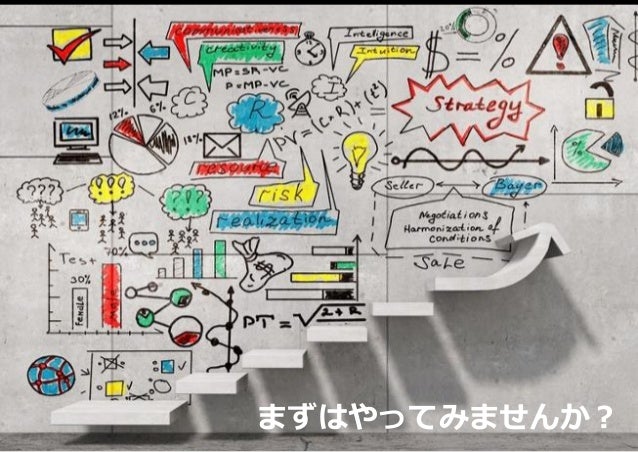 communicativeness
creativity
MP = SR - VC
P = MP - VC
Intelligence
Intuition
$ = %
Strategy
C
R
I
PY = (C + R) + (I²)
12%
6%
18%
resource
risk
realization
Seller
Bayer
Negotiations
Harmonization of
conditions
Sale
???
???
???
Test
70%
30%
female
male
$
PT = √2+R
%
まずはやってみませんか？